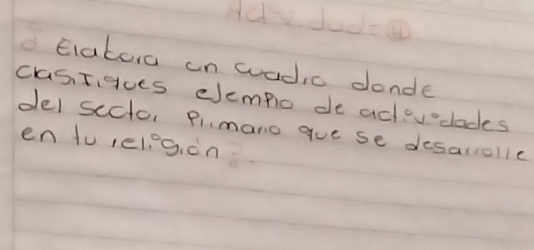 Actividad = 4
d Elabora un cuadro donde
clasifiques ejemplo de actividades
del sector primario que se desarrolle
en tu religión?